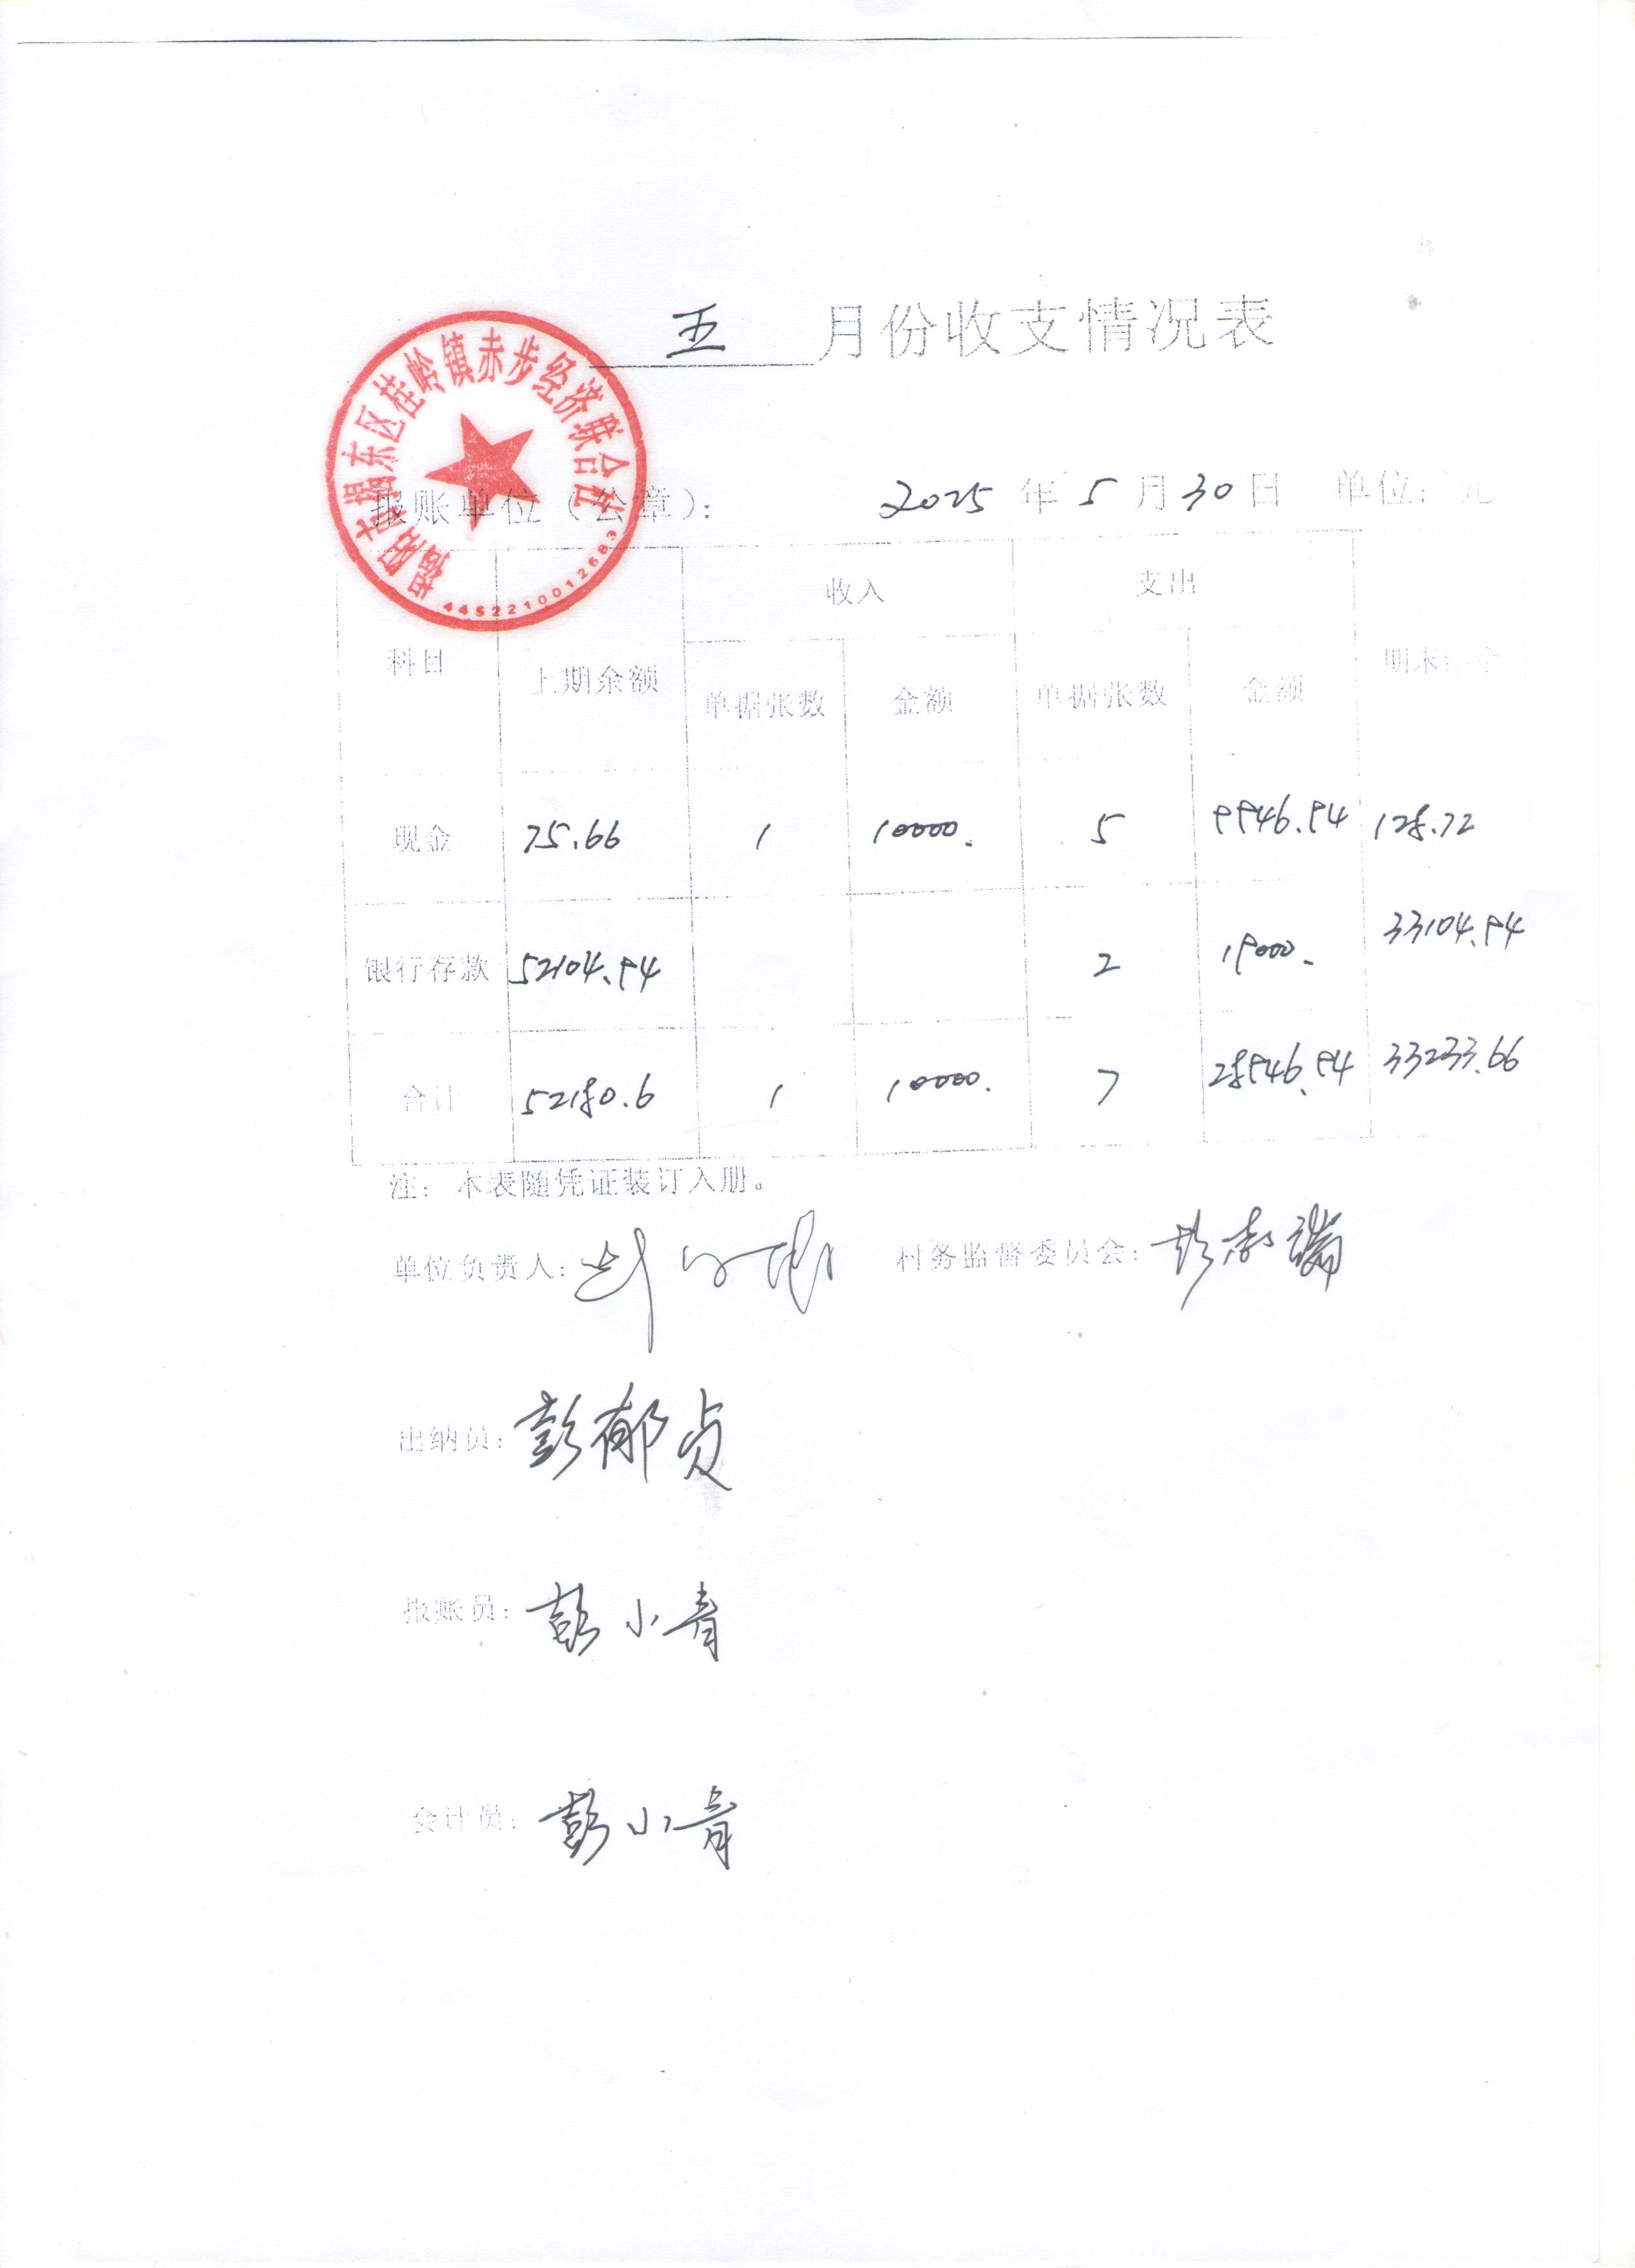 五 月份收支情况表
揭阳市揭东区桂岭镇赤步经济联合社
4452210012683
报账单位（公章）： 2025 年 5 月 30 日 单位：元
科目 上期余额 收入 支出 期末结余
单据张数 金额 单据张数 金额
现金 75.66 1 10000. 5 9946.94 128.72
银行存款 52104.94 2 19000. 33104.94
合计 52180.6 1 10000. 7 28946.94 33233.66
注：本表随凭证装订入册。
单位负责人： 村务监督委员会：
出纳员：彭郁贞
报账员：彭小青
会计员：彭小青